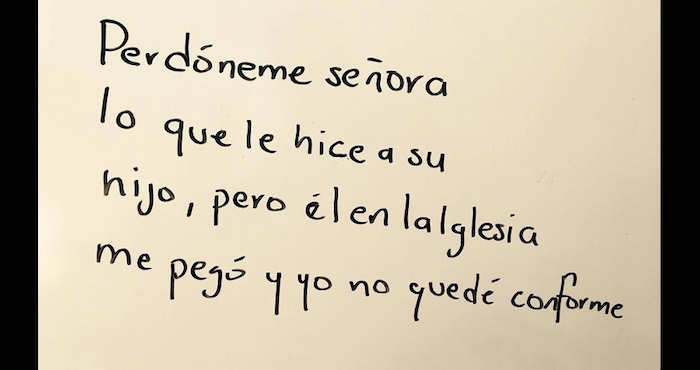 Perdóneme señora
lo que le hice a su
hijo, pero él en la Iglesia
me pegó y yo no quedé conforme